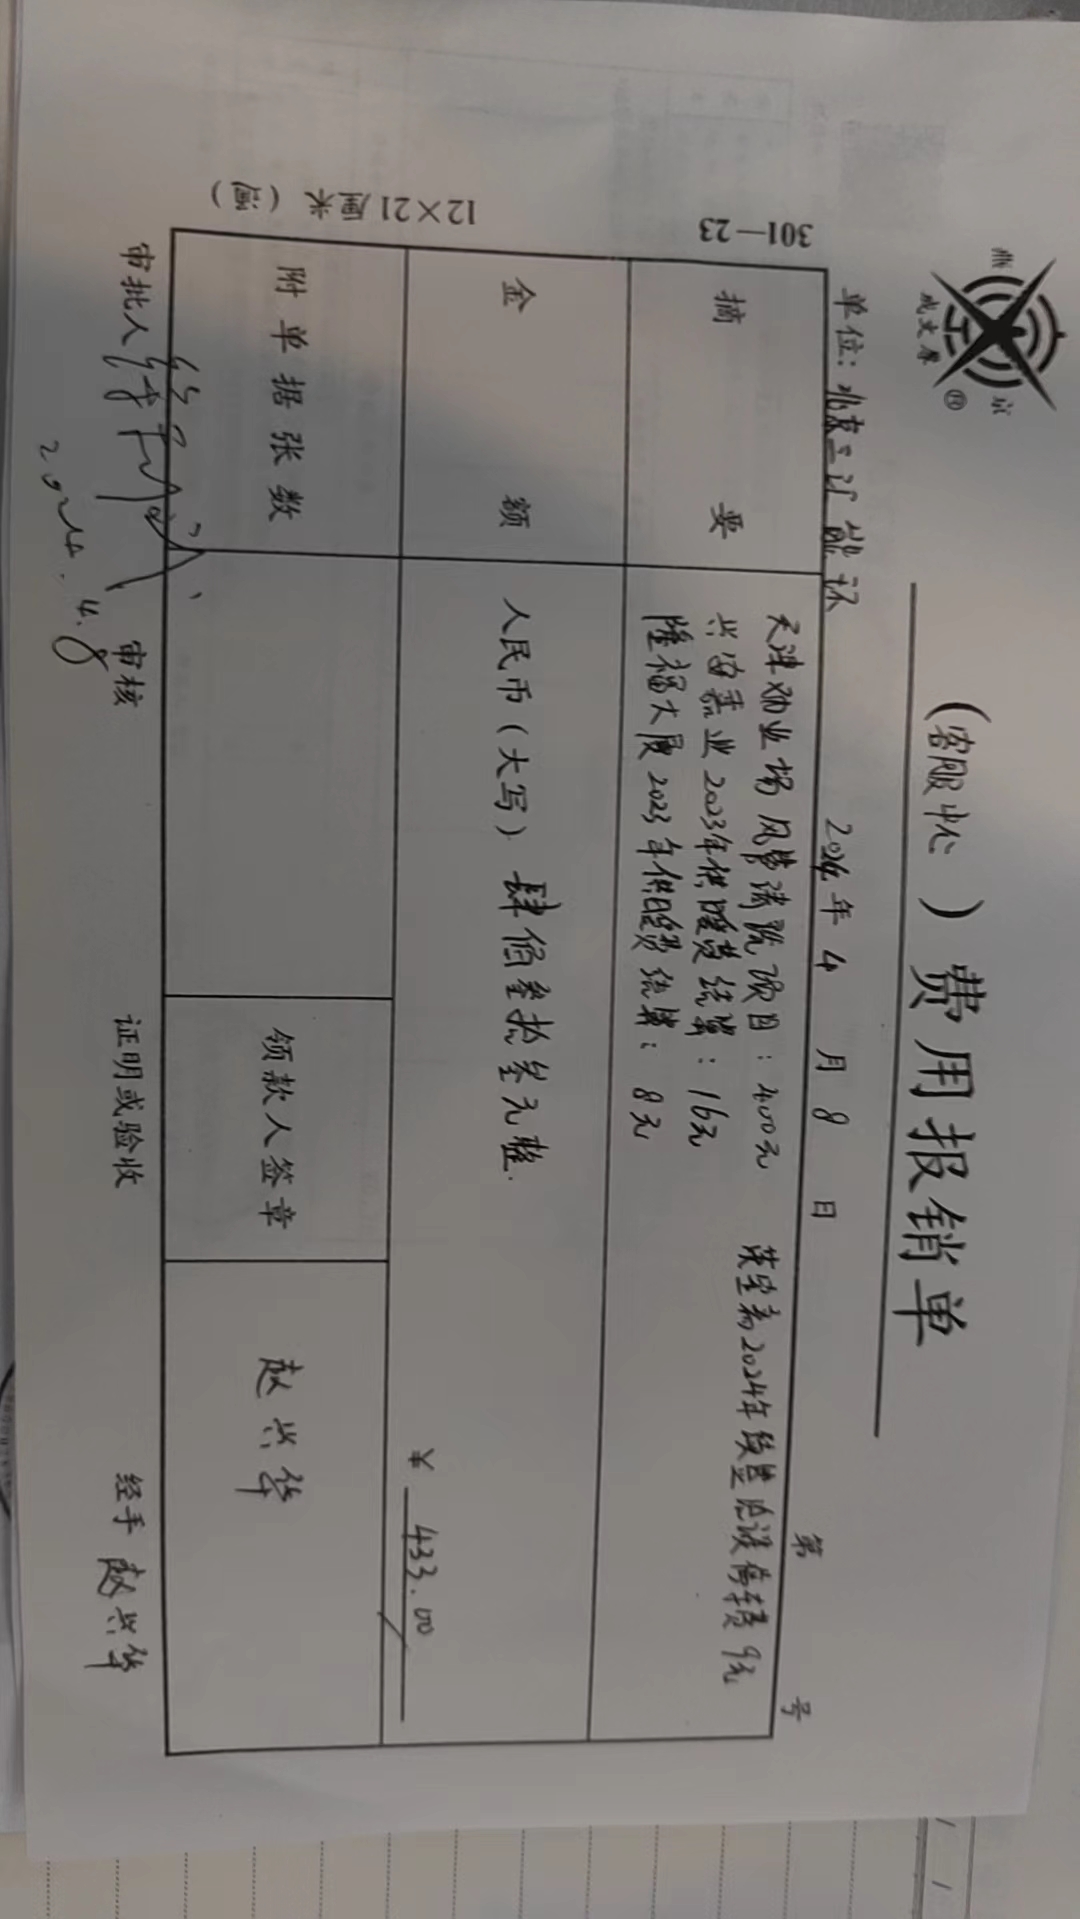 成文厚
京
（客服中心）费用报销单
单位：北京三计能环 2024年4月8日 第 号
301—23
12×21厘米
摘要
天津劝业场风管清洗项目：400元
兴安嘉业2023年供暖费结算：16元
隆福大厦2023年供暖费结算：8元
2024年 9元
金额
人民币（大写）肆佰叁拾叁元整.
¥ 433.00
附单据张数
领款人签章
赵兴华
审批人
2024.4.8
审核
证明或验收
经手 赵兴华